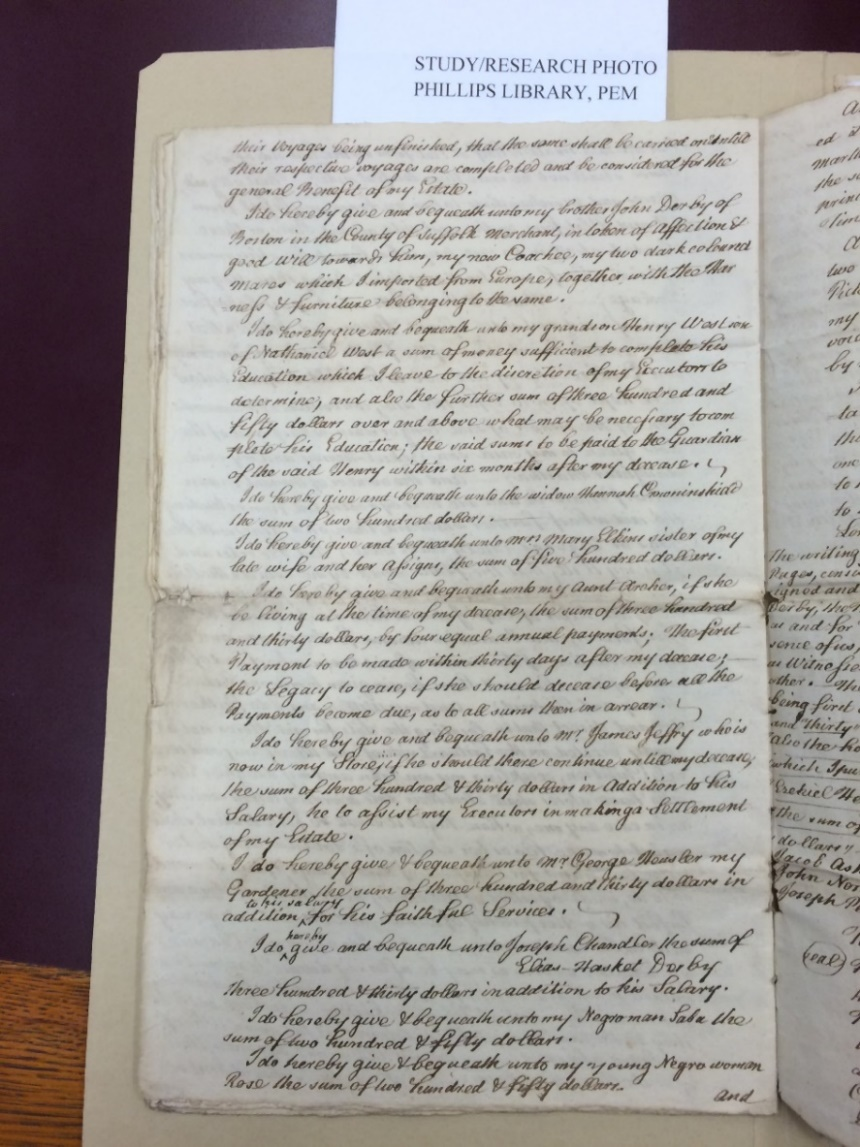 STUDY/RESEARCH PHOTO
PHILLIPS LIBRARY, PEM
their Voyages being unfinished, that the same shall be carried on until
their respective voyages are completed and be considered for the
general Benefit of my Estate.
I do hereby give and bequeath unto my brother John Derby of
Boston in the County of Suffolk Merchant, in token of Affection &
good Will towards him, my now Coachee, my two dark coloured
mares which I imported from Europe, together with the Har
ness & furniture belonging to the same.
I do hereby give and bequeath unto my grandson Henry West son
of Nathaniel West a sum of money sufficient to complete his
Education which I leave to the discretion of my Executors to
determine, and also the further sum of three hundred and
fifty dollars over and above what may be necessary to com
plete his Education; the said sums to be paid to the Guardian
of the said Henry within six months after my decease.
I do hereby give and bequeath unto the widow Hannah
the sum of two hundred dollars.
I do hereby give and bequeath unto Mrs Mary Elkins sister of my
late wife and her Assigns, the sum of five hundred dollars.
I do hereby give and bequeath unto my Aunt Archer, if she
be living at the time of my decease, the sum of three hundred
and thirty dollars, by four equal annual payments; the first
Payment to be made within thirty days after my decease;
the Legacy to cease, if she should decease before all the
Payments become due, as to all sums then in arrear.
I do hereby give and bequeath unto Mr. James Jeffry who is
now in my Store, if he should there continue untill my decease,
the sum of three hundred & thirty dollars in Addition to his
Salary, he to assist my Executors in making a Settlement
of my Estate.
I do hereby give & bequeath unto Mr. George Heusler my
Gardener, the sum of three hundred and thirty dollars in
to his salary
addition, for his faithful Services.
hereby
I do give and bequeath unto Joseph Chandler the sum of
Elias Hasket Derby
three hundred & thirty dollars in addition to his Salary.
I do hereby give & bequeath unto my Negro man Saba the
sum of two hundred & fifty dollars.
I do hereby give & bequeath unto my young Negro woman
Rose the sum of two hundred & fifty dollars.
and
two
my
by
the writing
Pages,
signed and
Derby, the
as and for
sence of us,
as Witnesses
other.
being first
and thirty
also the
which I
Ezekiel
the sum of
dollars
Jacob
John Nor
Joseph